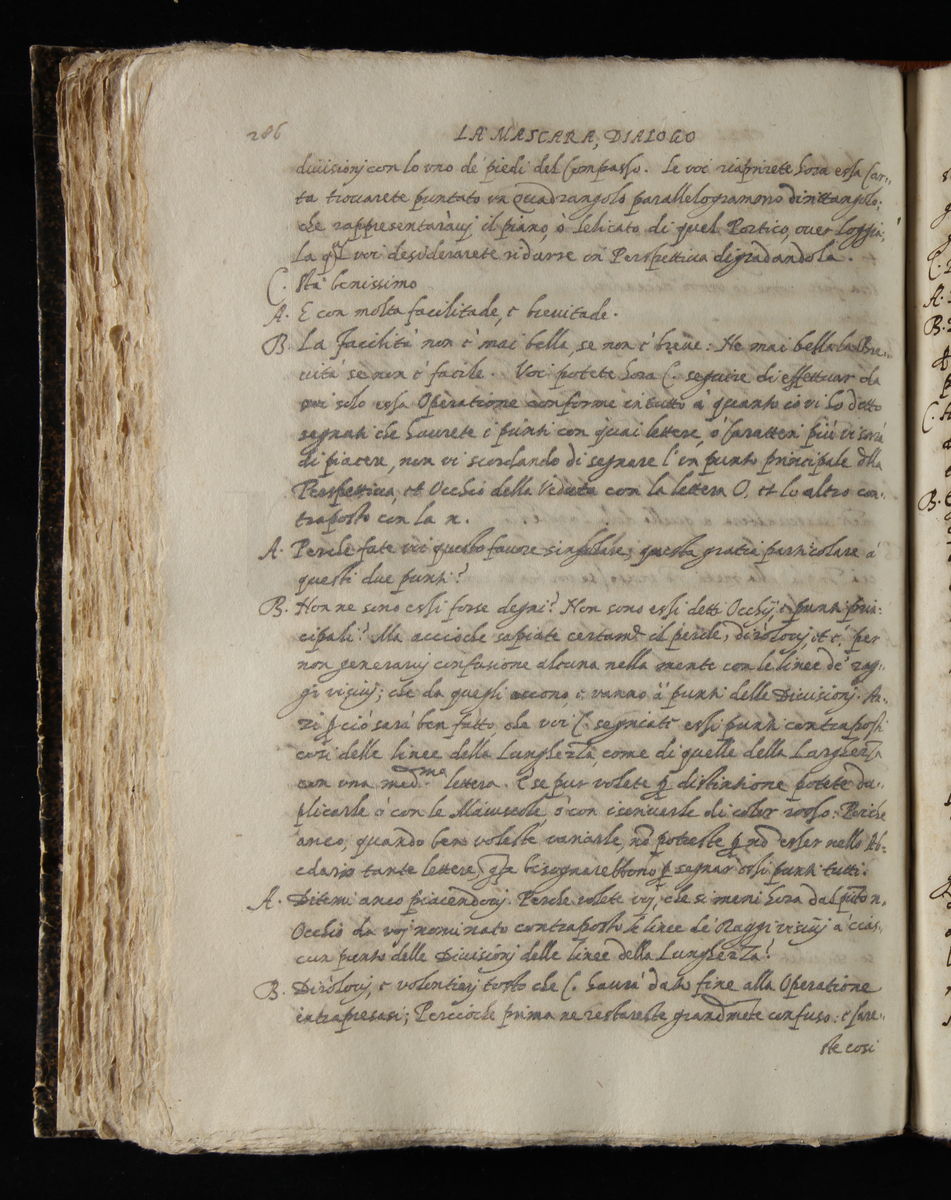 286
LA MASCARA, DIALOGO
diuisionj con lo vno de' piedi del Compasso. Se voi riaprirete hora essa Car-
ta trouarete puntato vn Quadrangolo parallelogrammo dirittangolo;
che rappresentaràuj il piano, ò selicato di quel Portico, ouer loggia,
La ql voi desiderarete ridurre in Perspettiua digradandola.
C. Stà benissimo
A. E con molta facilitade, e breuitade.
B. La facilità non è mai bella, se non è breue: Ne mai bella la Bre-
uità se non è facile. Voi potete hora C. seguire di effettuar da
voi solo essa Operatione conforme in tutto à quanto io vi hò detto
segnati che haurete i punti con quai lettere, ò Caratteri più vi sarà
di piacere, non vi scordando di segnare l'vn punto principale dlla
Perspettiua, et Occhio della Veduta con la lettera O, et lo altro con-
traposto con la n.
A. Perche fate voi questo fauore singulare, questa gratia particolare à
questi due punti?
B. Non ne sono essi forse degni? Non sono essi detti Occhij, e punti prin-
cipali? Ma accioche sapiate certamte il perche, diròlouj, et è, per
non generaruj confusione alcuna nella mente con le linee de' rag-
gi visiuj; che da quegli uccono, e vanno à punti delle Diuisionj. An-
zi p ciò sarà ben fatto, che voi C. segniate essi punti contraposti
così delle linee della Lunghezza, come di quelle della Larghezza
con vna medma lettera. E se pur volete p distintione potete du-
plicarle ò con le Maiuscole ò con iscriuerle di color rosso: Perche
anco, quando ben voleste variarle, nō potreste p nō esser nello Ab-
cdario tante lettere, qte bisognarebbono p segnar essi punti tutti.
A. Ditemi anco piacendouj. Perche volete voj, che si meni hora dal pūto n.
Occhio da voj nominato contraposto le linee de' Raggi visiuj à cias-
cun punto delle Diuisionj delle linee della Lunghezza?
B. Diròlouj, e volontierj tosto che C. haurà dato fine alla Operatione
intrapresasi; Percioche prima ne restareste grandmēte confuso: e sare-
ste così